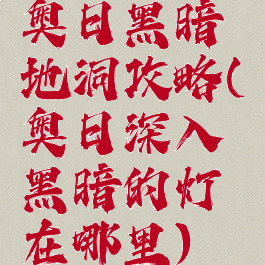 奥日黑暗
地洞攻略(
奥日深入
黑暗的灯
在哪里)